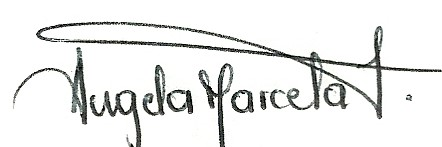 Angela Marcela T.